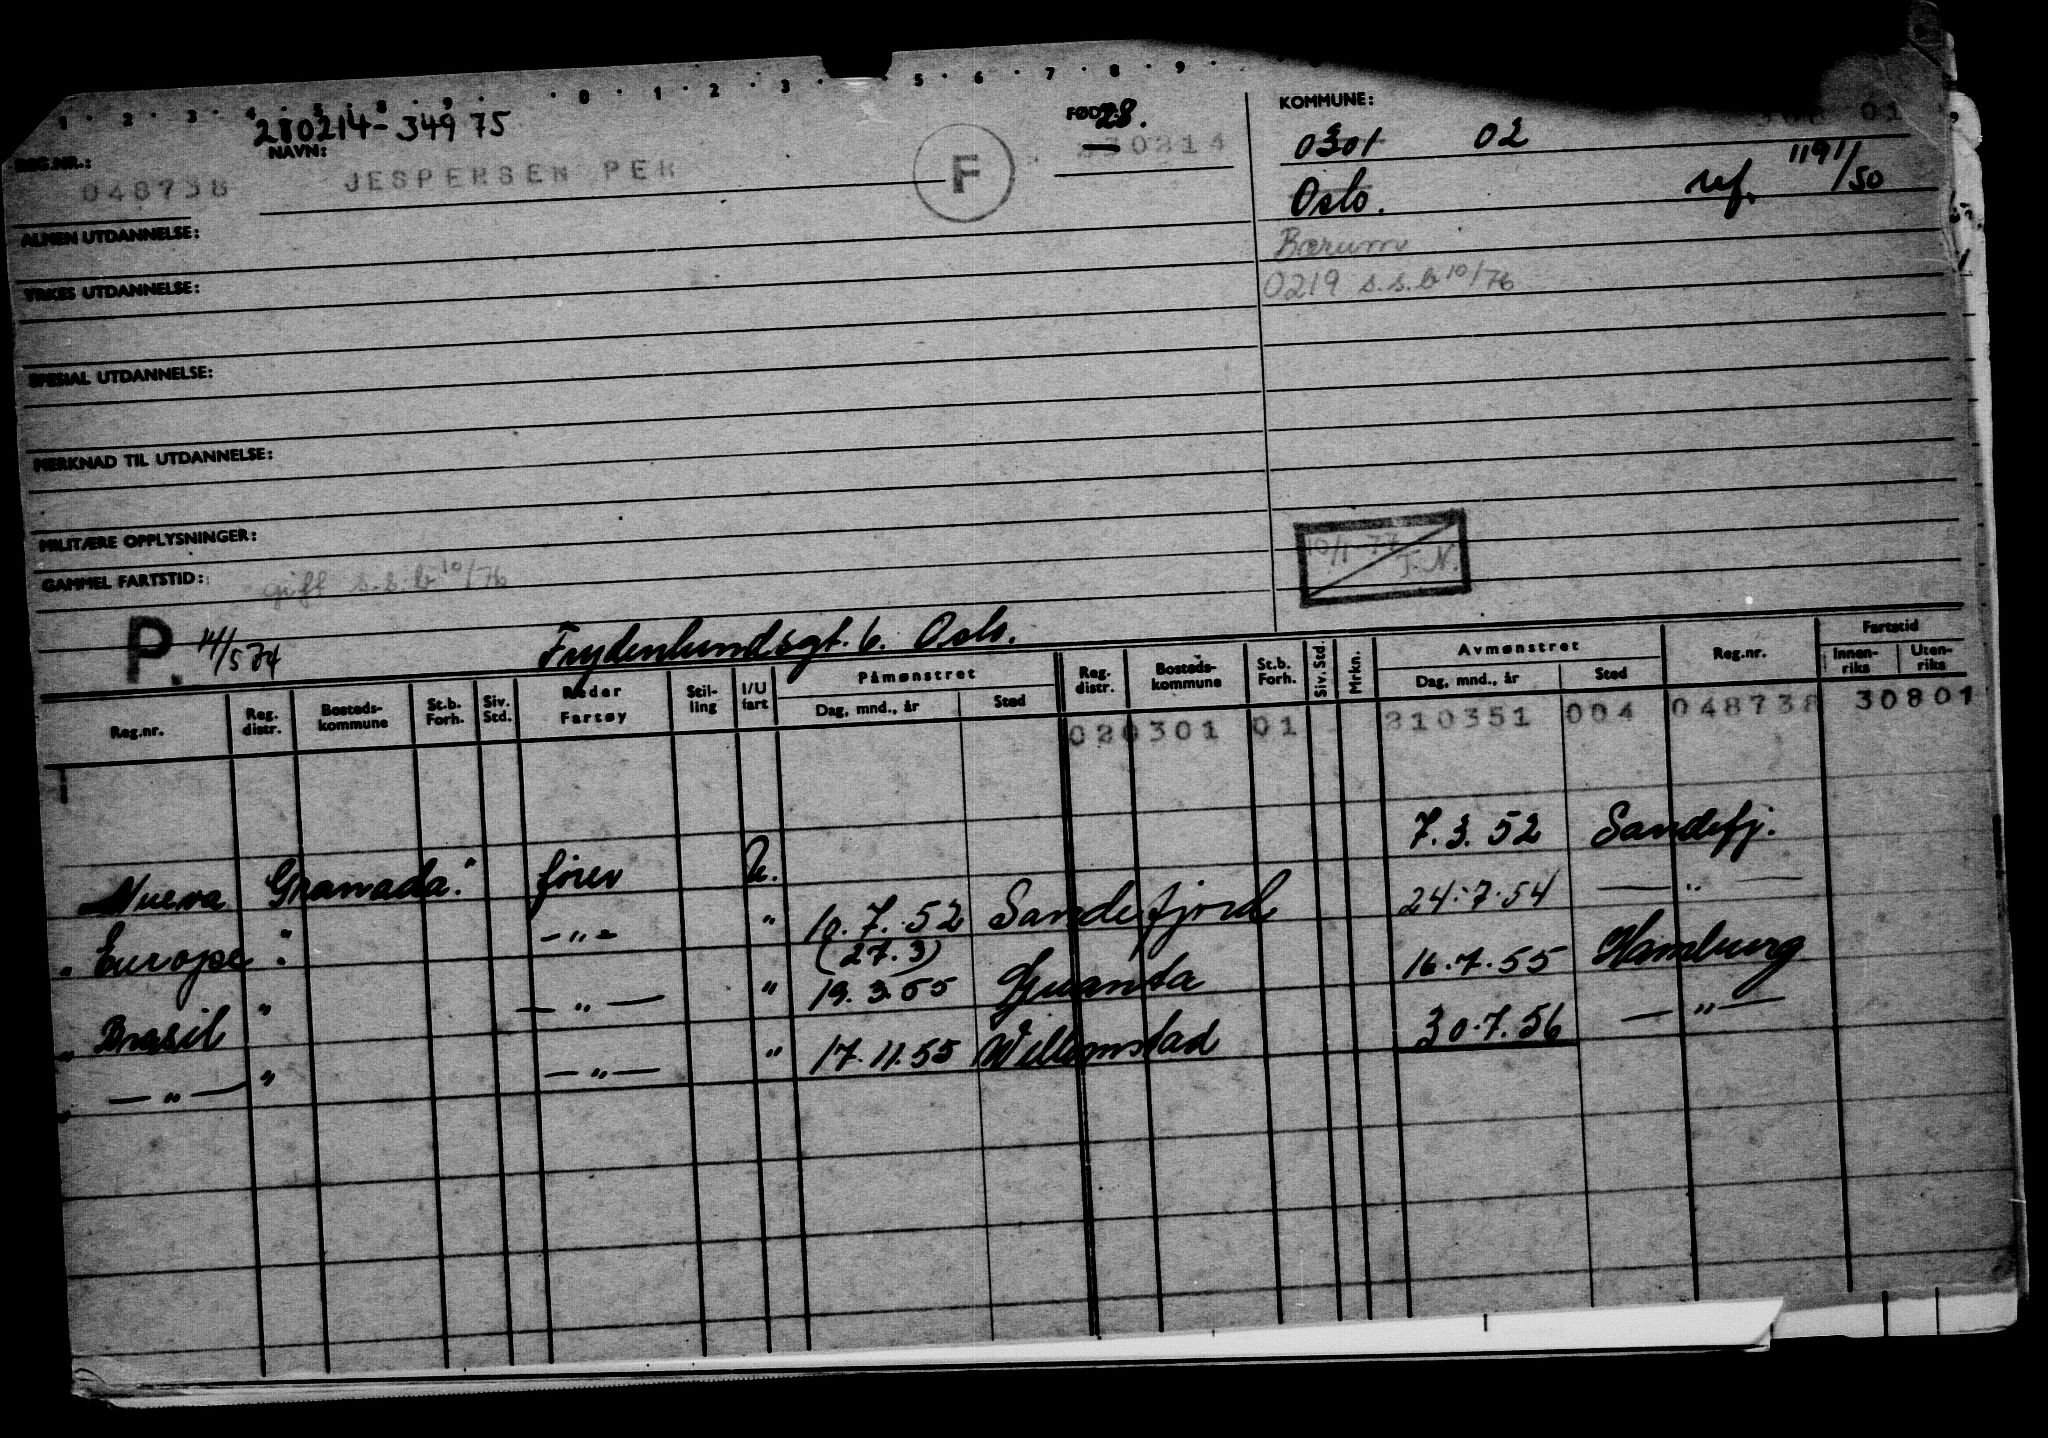 1 . 2 . 3 . 4 . 5 . 8 . 9 . . 0 . 1 . 2 . 3 . . 5 . 6 . 7 . 8 . 9 .
280214-34975
REG.NR.: NAVN: FØDT: 28. KOMMUNE:
048738 JESPERSEN PER F 0214 0301 02 01
Oslo. ref. 1191/50
ALMEN UTDANNELSE: Bærum
YRKES UTDANNELSE: 0219 s.s.b 10/76
SPESIAL UTDANNELSE:
MERKNAD TIL UTDANNELSE:
MILITÆRE OPPLYSNINGER: 10/1-77 T.N.
GAMMEL FARTSTID: gift s.s.b 10/76
P. 14/5 74 Frydenlundsgt. 6. Oslo.
Reg.nr. Reg. distr. Bosteds-kommune St.b. Forh. Siv. Std. Reder Fartøy Stil-ling I/U fart Påmønstret Dag, mnd., år Sted Reg. distr. Bosteds-kommune St.b. Forh. Siv. Std. Mrkn. Avmønstret Dag, mnd., år Sted Reg.nr. Fartstid Innen-riks Uten-riks
02 0301 01 210351 004 048738 30801
Nueva Granada." fører U. 7.3.52 Sandefj.
" Europe". — " — " 10.7.52 Sandefjord 24.7.54 — " —
(27.3)
" Brasil " — " — " 19.3.55 Guanta 16.7.55 Hamburg
" — " — " — " — " 17.11.55 Willemstad 30.7.56 — " —